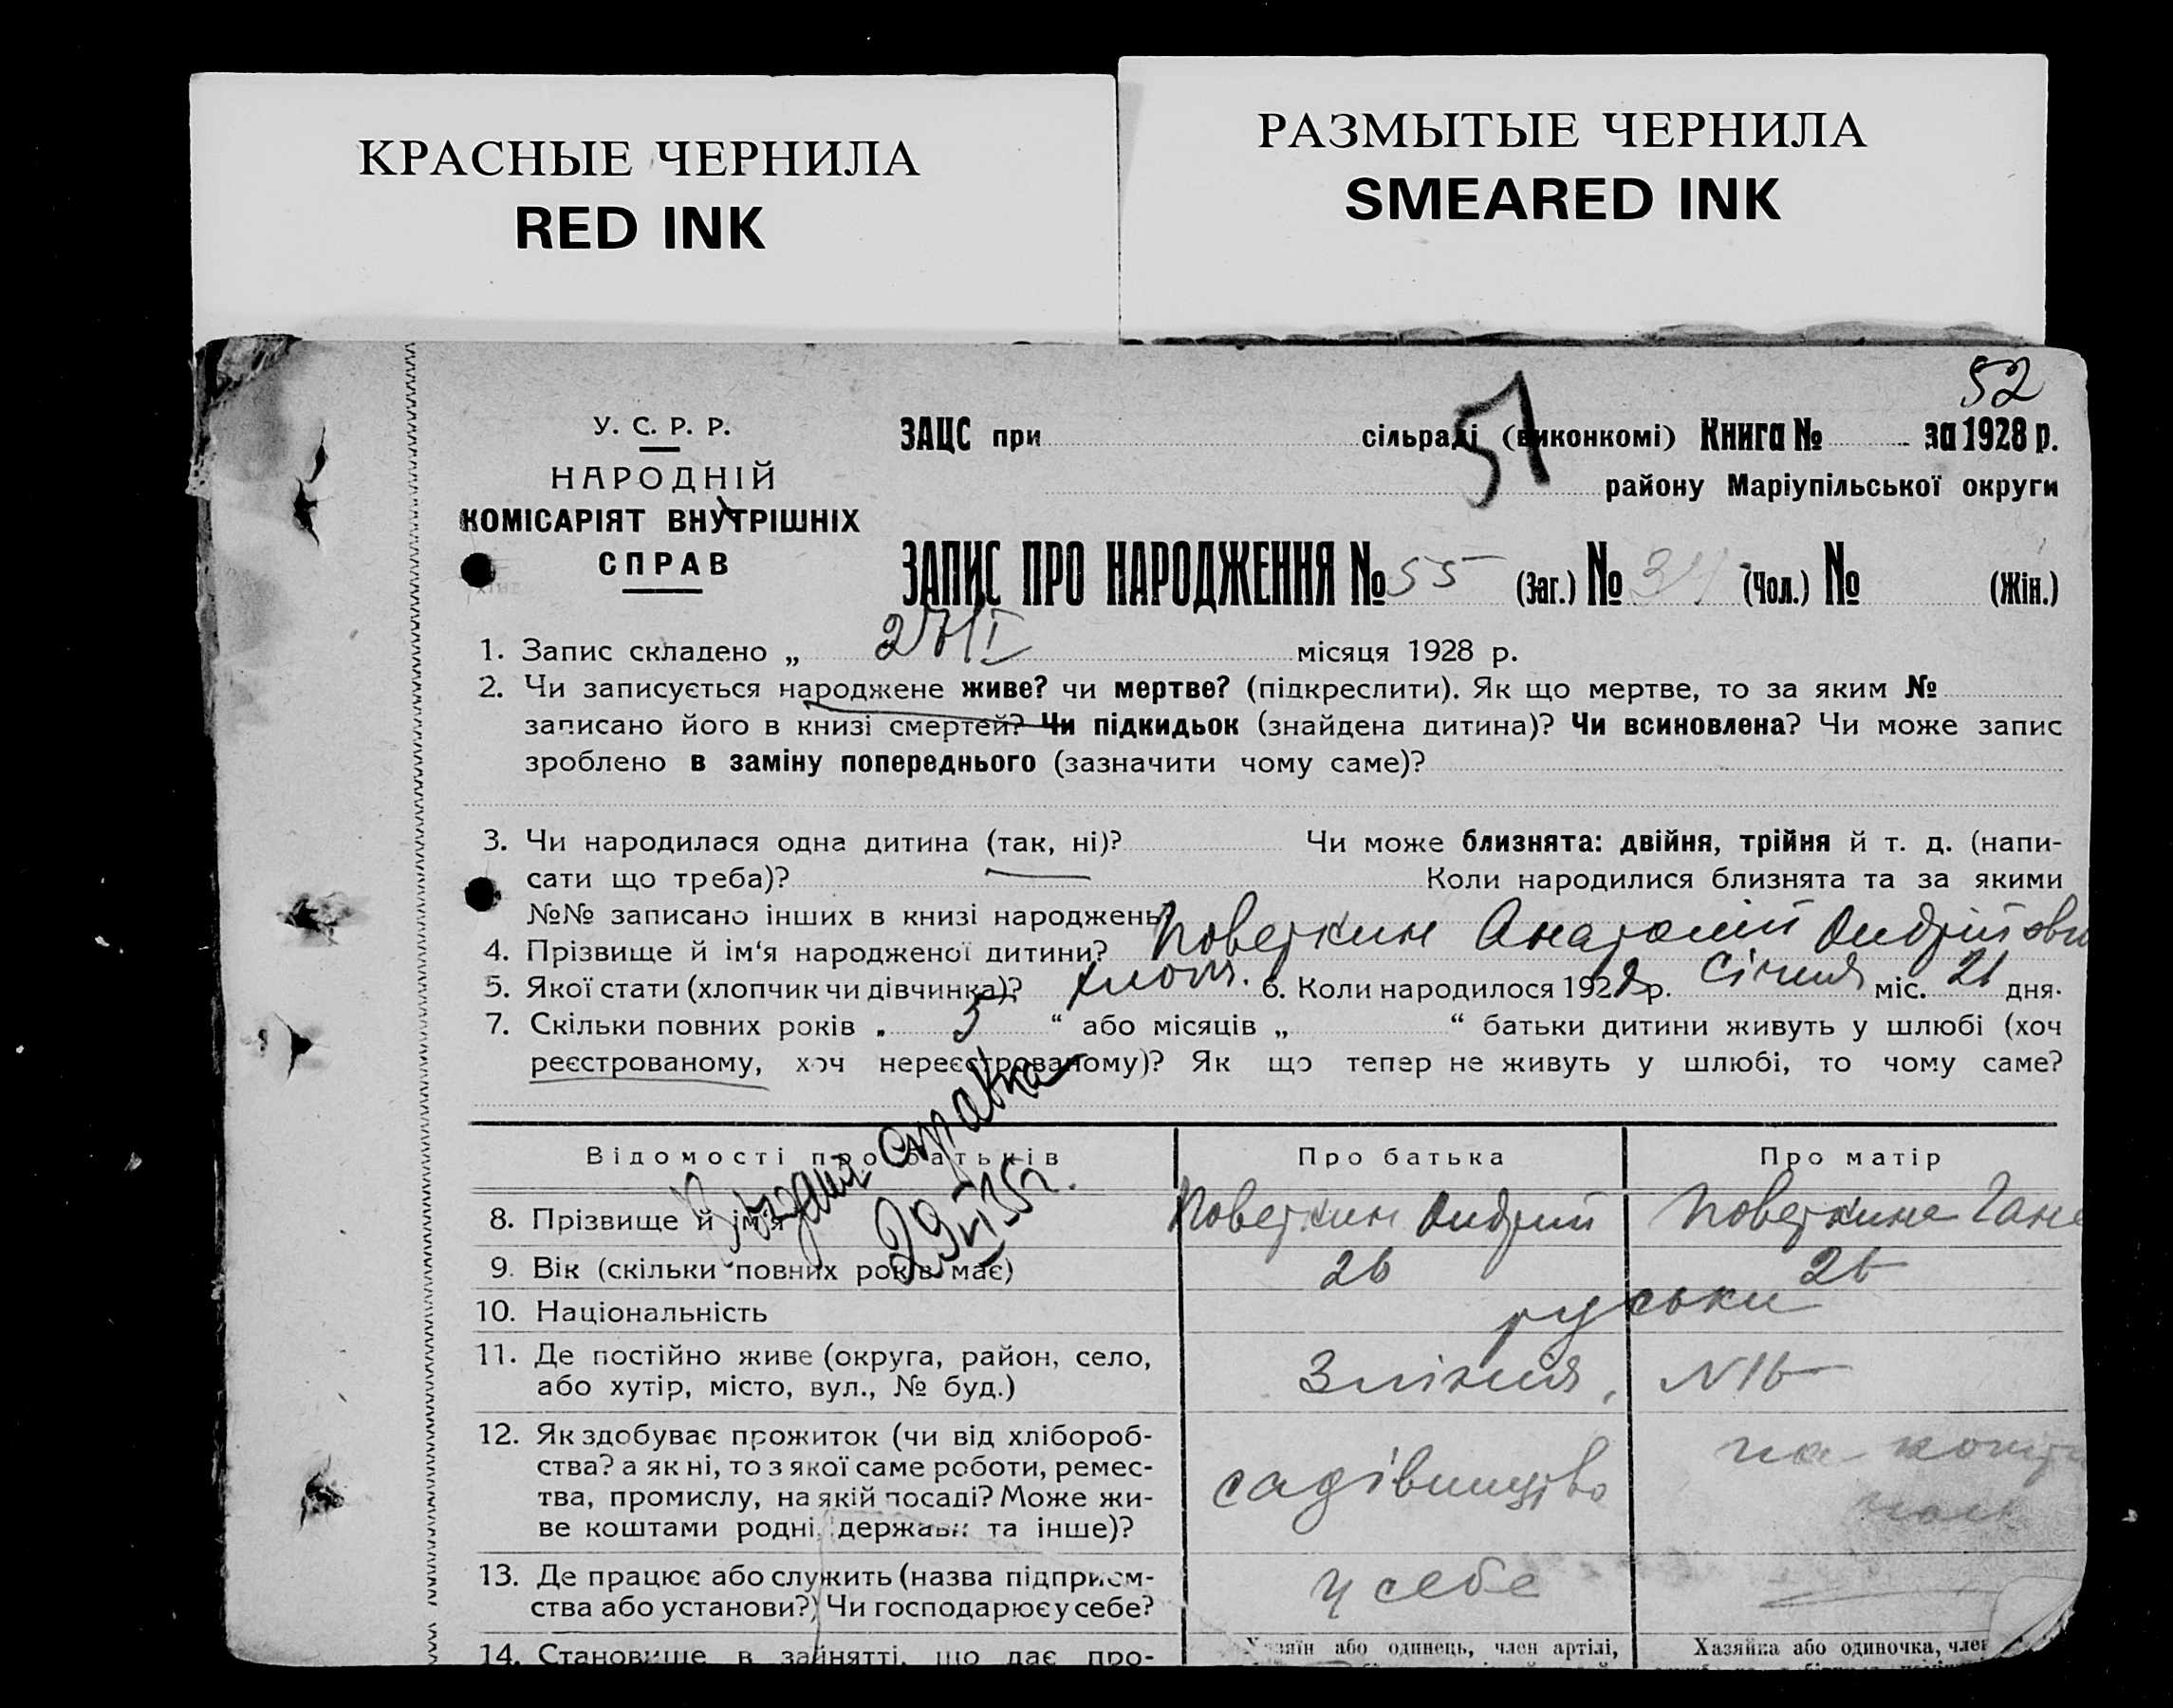 КРАСНЫЕ ЧЕРНИЛА
RED INK
РАЗМЫТЫЕ ЧЕРНИЛА
SMEARED INK
52
57
У. С. Р. Р.
НАРОДНІЙ
КОМІСАРІЯТ ВНУТРІШНІХ
СПРАВ
ЗАЦС при сільраді (виконкомі) Книга № за 1928 р.
району Маріупільської округи
ЗАПИС ПРО НАРОДЖЕННЯ № 55 (Заг.) № (Чол.) № (Жін.)
1. Запис складено „ місяця 1928 р.
2. Чи записується народжене живе? чи мертве? (підкреслити). Як що мертве, то за яким №
записано його в книзі смертей? Чи підкидьок (знайдена дитина)? Чи всиновлена? Чи може запис
зроблено в заміну попереднього (зазначити чому саме)?
3. Чи народилася одна дитина (так, ні)? Чи може близнята: двійня, трійня й т. д. (напи-
сати що треба)? Коли народилися близнята та за якими
№№ записано інших в книзі народжень?
4. Прізвище й ім‘я народженої дитини? Поверкин Анатолий Андрійови
5. Якої статі (хлопчик чи дівчинка)? хлоп. 6. Коли народилося 1928 р. Січня міс. 21 дня.
7. Скільки повних років „ 5 “ або місяців „ “ батьки дитини живуть у шлюбі (хоч
реєстрованому, хоч нереєстрованому)? Як що тепер не живуть у шлюбі, то чому саме?
Відомості про батьків Про батька Про матір
Видана справка
29
8. Прізвище й ім‘я Поверкин Андрий Поверкина Гана
9. Вік (скільки повних років має) 26 26
10. Національність руськи
11. Де постійно живе (округа, район, село,
або хутір, місто, вул., № буд.)
3 лінія, N 16
12. Як здобуває прожиток (чи від хлібороб-
ства? а як ні, то з якої саме роботи, ремес-
тва, промислу, на якій посаді? Може жи-
ве коштами родні, держави та інше)?
садівництво
на
13. Де працює або служить (назва підприєм-
ства або установи?) Чи господарює у себе?
у себе
14. Становище в зайнятті, що дає про-
Хазяїн або одинець, член артілі,
Хазяйка або одиночка, член